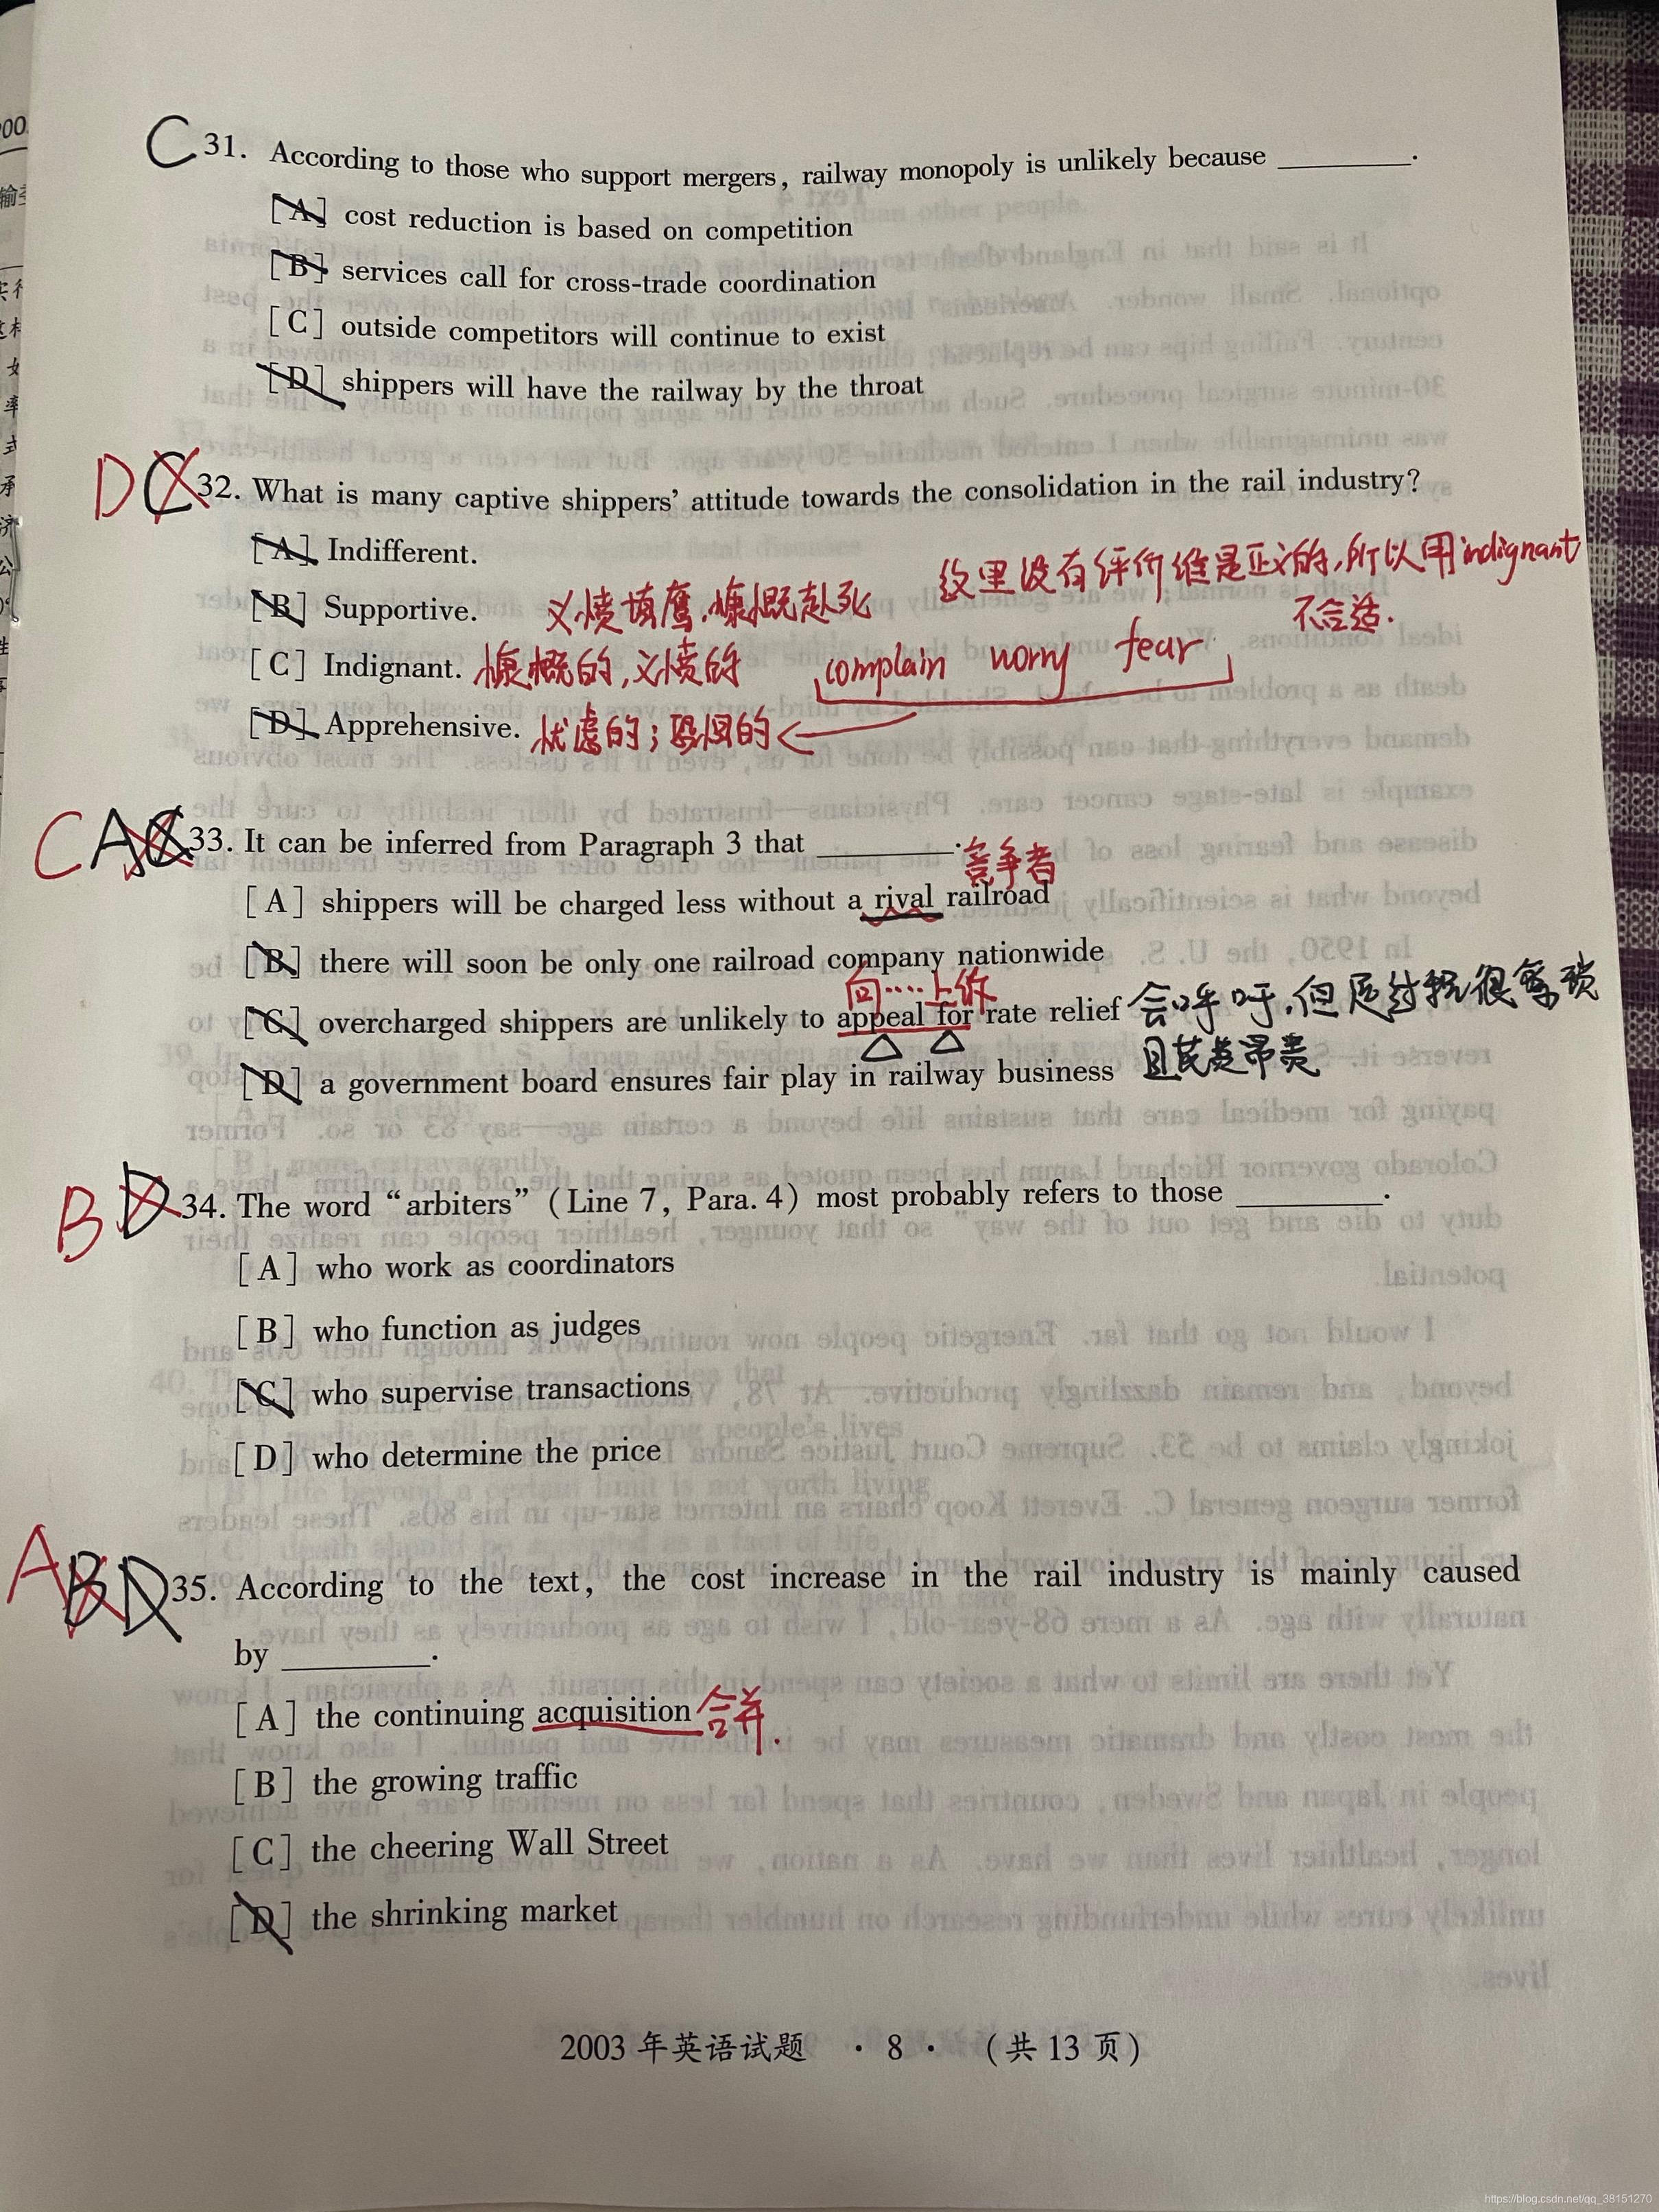 C 31. According to those who support mergers, railway monopoly is unlikely because ________.
[A] cost reduction is based on competition
[B] services call for cross-trade coordination
[C] outside competitors will continue to exist
[D] shippers will have the railway by the throat
D C 32. What is many captive shippers' attitude towards the consolidation in the rail industry?
[A] Indifferent.
这里没有评价谁是正义的,所以用indignant
不合适.
[B] Supportive. 义愤填鹰,慷慨赴死
[C] Indignant. 慷慨的,义愤的 complain worry fear
[D] Apprehensive. 忧虑的;恐惧的
C A C 33. It can be inferred from Paragraph 3 that ________.
竞争者
[A] shippers will be charged less without a rival railroad
[B] there will soon be only one railroad company nationwide
向····上诉
[C] overcharged shippers are unlikely to appeal for rate relief 会呼吁,但是过程很繁琐
且花费昂贵
[D] a government board ensures fair play in railway business
B D 34. The word “arbiters” (Line 7, Para. 4) most probably refers to those ________.
[A] who work as coordinators
[B] who function as judges
[C] who supervise transactions
[D] who determine the price
A B D 35. According to the text, the cost increase in the rail industry is mainly caused
by ________.
[A] the continuing acquisition 合并.
[B] the growing traffic
[C] the cheering Wall Street
[D] the shrinking market
2003 年英语试题 · 8 · (共 13 页)
https://blog.csdn.net/qq_38151270